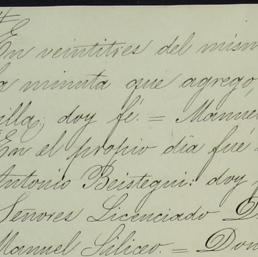 En veintitres del mism
a minuta que agrego,
illa; doy fé. = Manuel
En el propio dia fué
Antonio Beistegui: doy
Señores Licenciado D
Manuel Siliceo. = Don